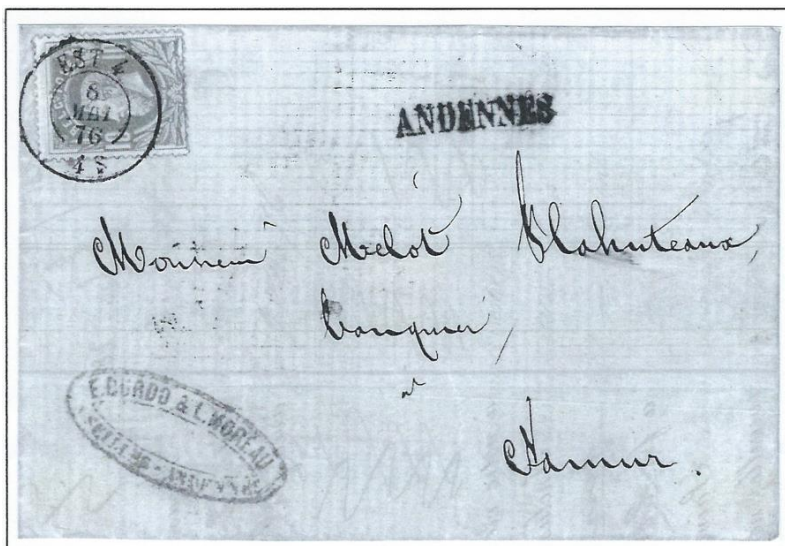 EST 4
6
MAI
76
4 S
ANDENNES
Monsieur Melot
banquier,
à
Namur.
E. DORDO & L. MOREAU